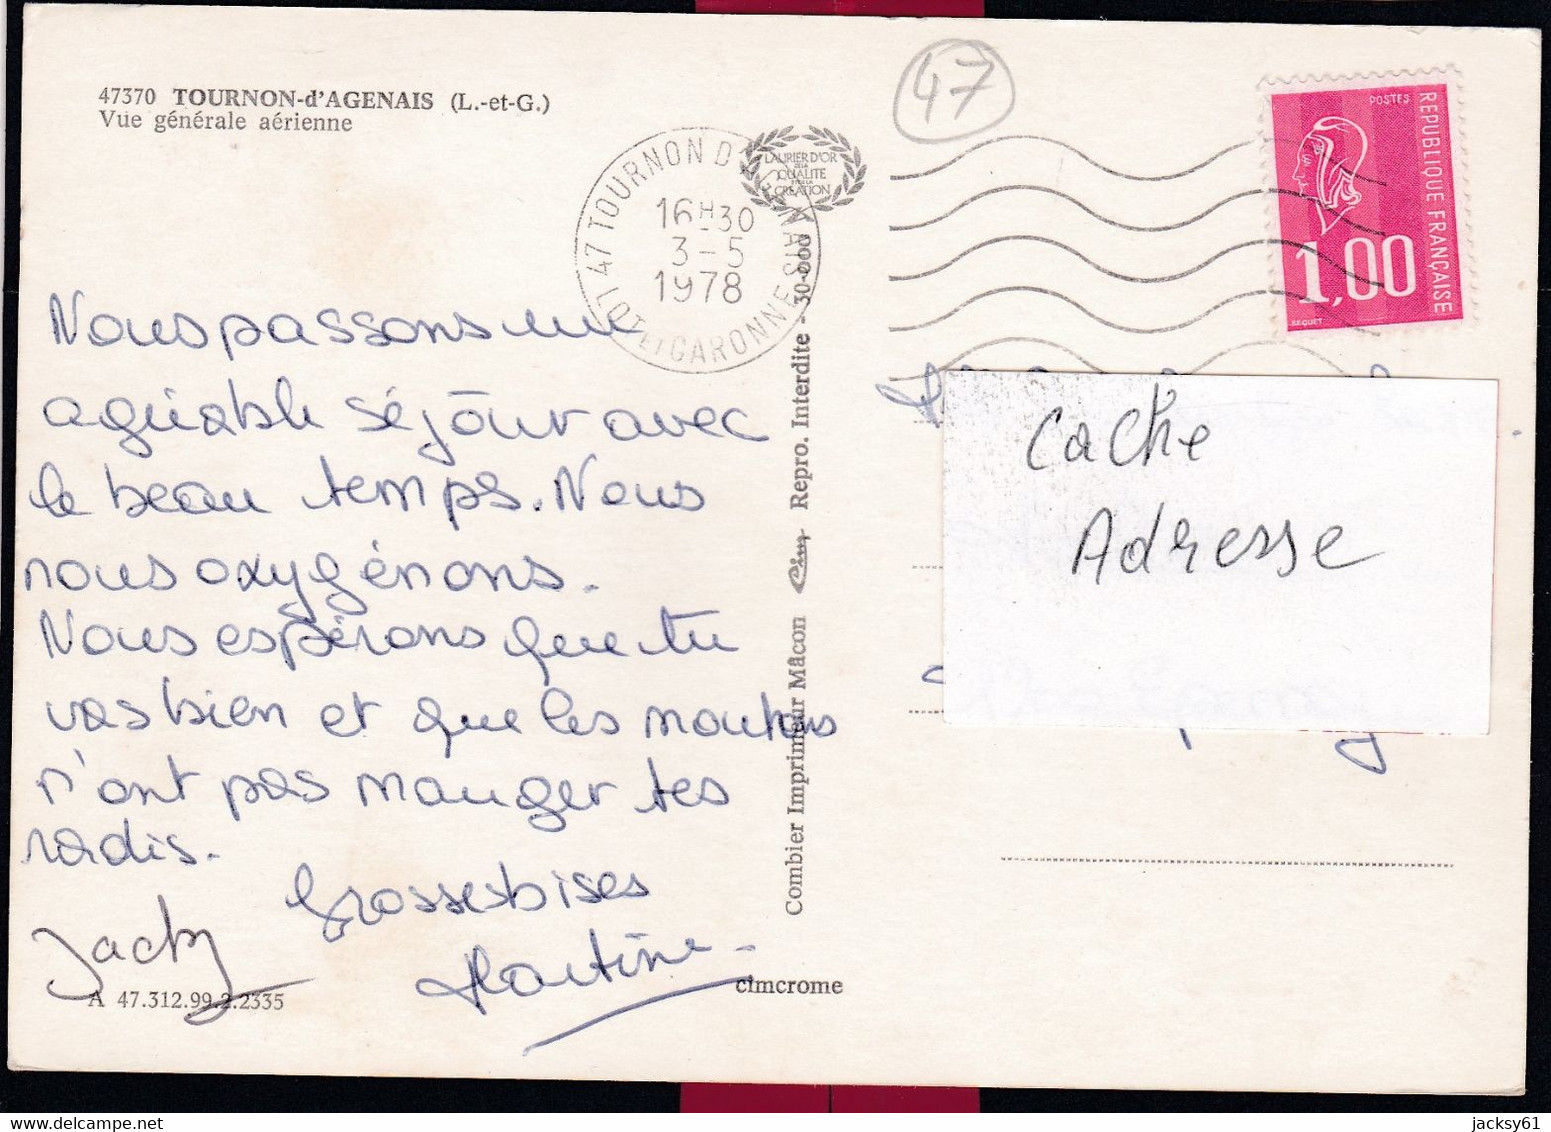 47370 TOURNON-d'AGENAIS (L.-et-G.)
Vue générale aérienne
47
47 TOURNON D'AGENAIS
16H30
3-5
1978
LOT ET GARONNE
LAURIER D'OR
DE LA
QUALITE
ET DE LA
CREATION
POSTES
REPUBLIQUE FRANÇAISE
1,00
BEQUET
Nous passons un
agréable séjour avec
le beau temps. Nous
nous oxygénons.
Nous espérons que tu
vas bien et que les moutons
n'ont pas manger tes
radis.
Grosses bises
Jacky
Martine
A 47.312.99.2.2335
cimcrome
Combier Imprimeur Mâcon Cim Repro. Interdite - 30-000
Cache
Adresse
jacksy61